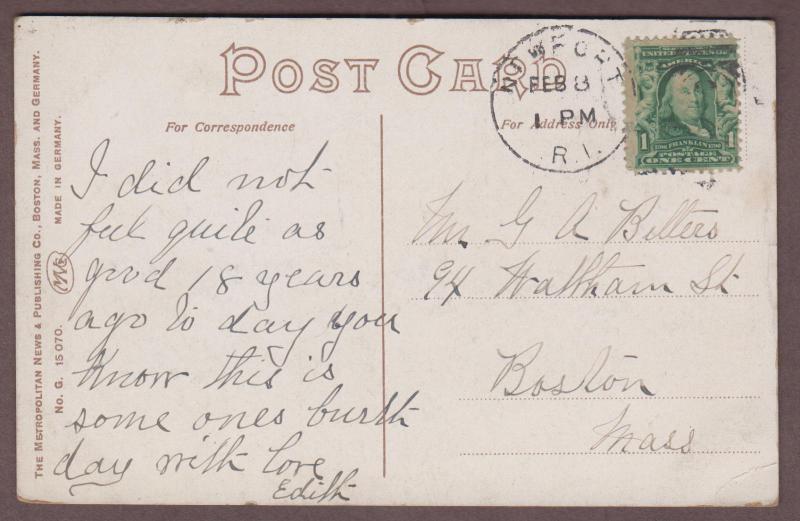 POST CARD
For Correspondence
For Address Only.
THE METROPOLITAN NEWS & PUBLISHING CO., BOSTON, MASS. AND GERMANY.
No. G. 15070.
MADE IN GERMANY.
NEWPORT
FEB 8
1 PM
R.I.
UNITED STATES OF
AMERICA
1706 FRANKLIN 1790
POSTAGE
1 ONE CENT 1
I did not
feel quite as
good 18 years
ago to day you
know this is
some ones burth
day with love
Edith
Mr. G A Betters
94 Waltham St
Boston
Mass